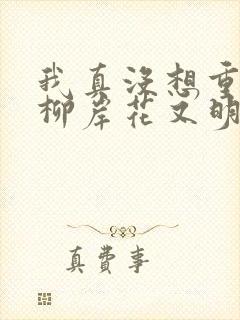 我真没想重
柳岸花又明
真费事